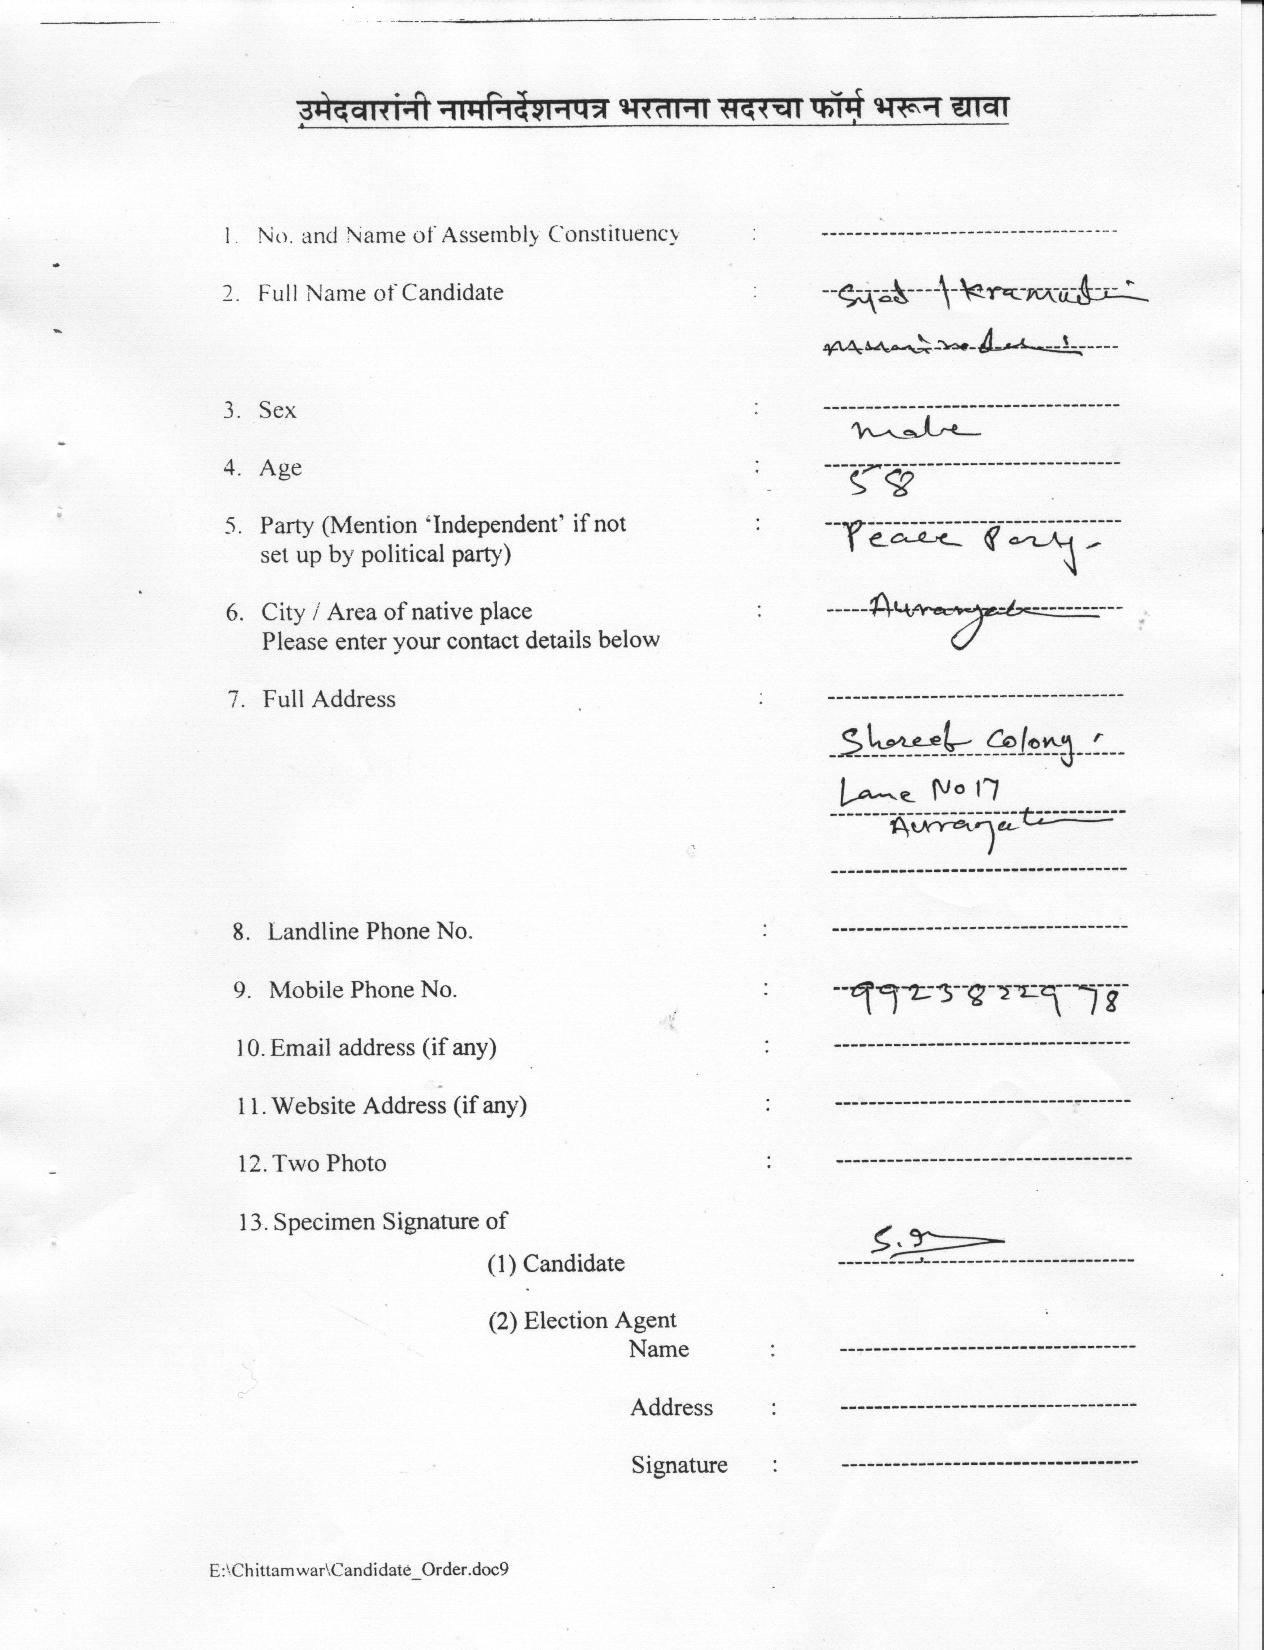 उमेदवारांनी नामनिर्देशनपत्र भरताना सदरचा फॉर्म भरून द्यावा
1. No. and Name of Assembly Constituency :
2. Full Name of Candidate : Syed Ikramuddin
3. Sex :
male
4. Age :
58
5. Party (Mention ‘Independent’ if not :
set up by political party) Peace Party-
6. City / Area of native place : Aurangabad
Please enter your contact details below
7. Full Address :
Shareef Colony,
Lane No 17
Aurangabad
8. Landline Phone No. :
9. Mobile Phone No. : 9923822978
10. Email address (if any) :
11. Website Address (if any) :
12. Two Photo :
13. Specimen Signature of
(1) Candidate
(2) Election Agent
Name :
Address :
Signature :
E:\Chittamwar\Candidate_Order.doc9